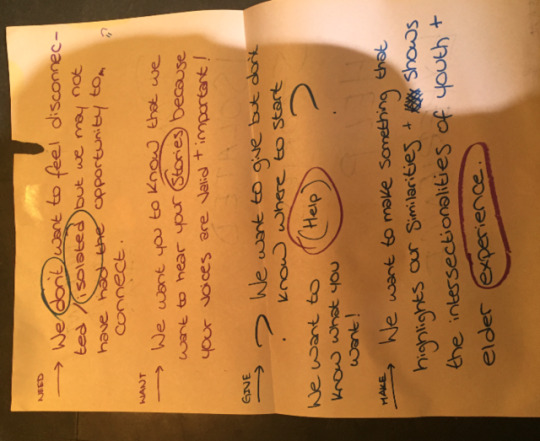 NEED → We don't want to feel disconnec-
ted / isolated but we may not
have had the opportunity to
connect.
WANT → We want you to know that we
want to hear your stories because
your voices are valid + important!
GIVE → ? We want to give but don't
know where to start ?
We want to (Help)
know what you
want!
MAKE → We want to make something that
highlights our similarities + shows
the intersectionalities of youth +
elder experience.